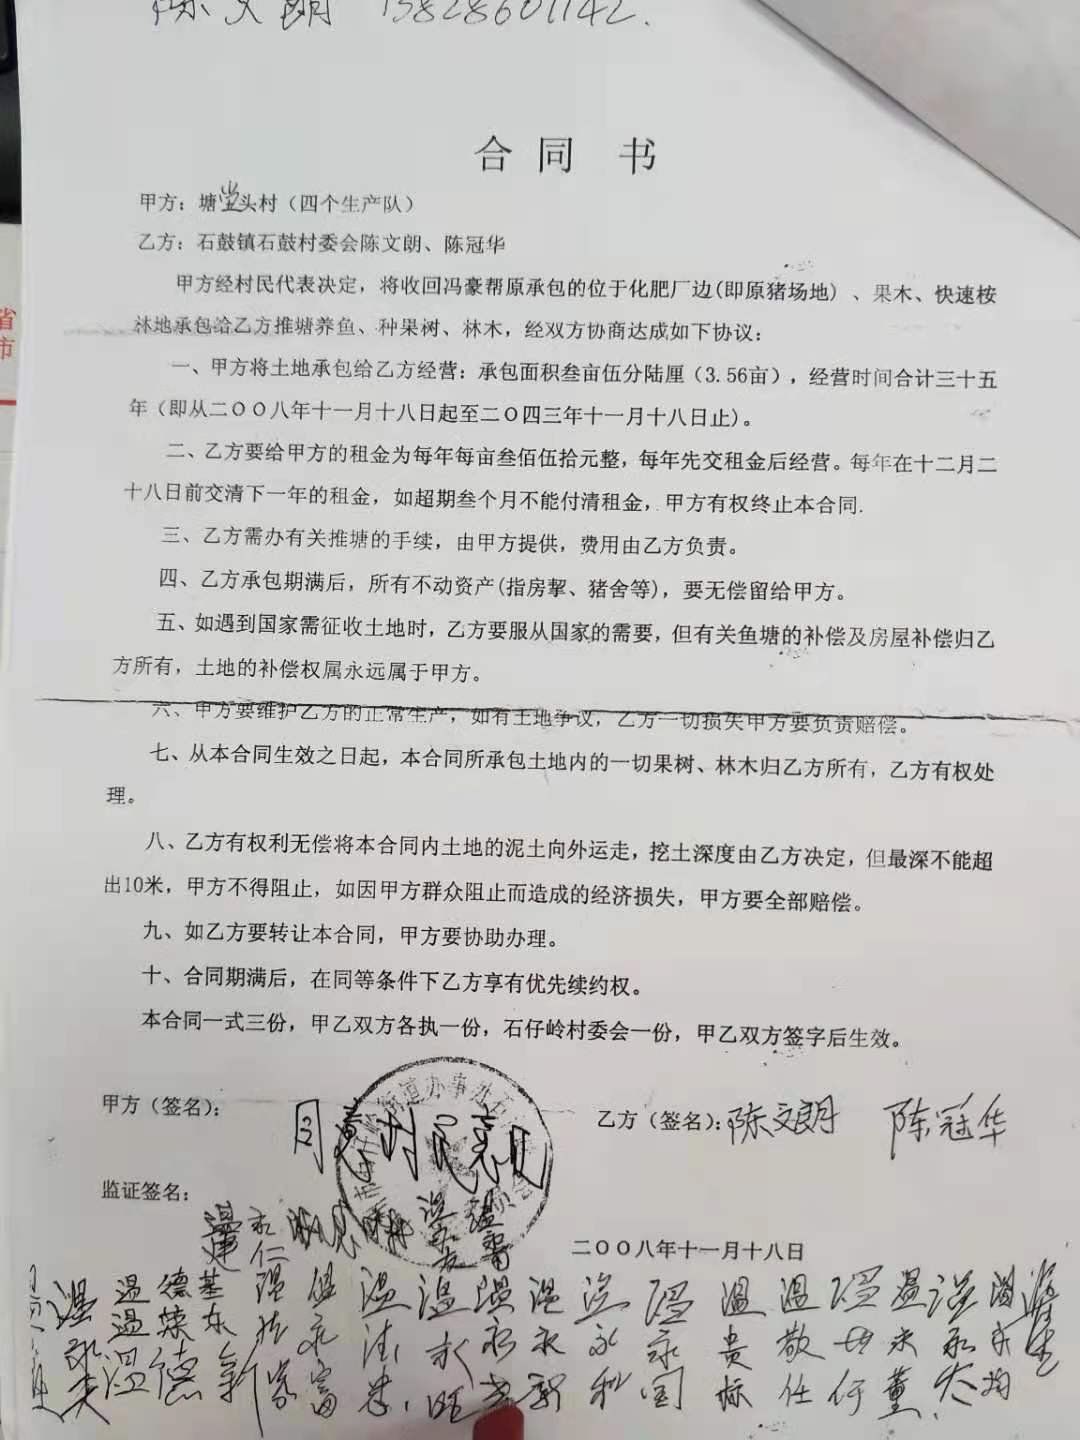 陈文朗 13828601142.
合同 书
甲方：塘莹头村（四个生产队）
乙方：石鼓镇石鼓村委会陈文朗、陈冠华
甲方经村民代表决定，将收回冯豪帮原承包的位于化肥厂边(即原猪场地）、果木、快速桉
林地承包给乙方推塘养鱼、种果树、林木，经双方协商达成如下协议：
一、甲方将土地承包给乙方经营：承包面积叁亩伍分陆厘（3.56亩），经营时间合计三十五
年（即从二OO八年十一月十八日起至二O四三年十一月十八日止）。
二、乙方要给甲方的租金为每年每亩叁佰伍拾元整，每年先交租金后经营。每年在十二月二
十八日前交清下一年的租金，如超期叁个月不能付清租金，甲方有权终止本合同.
三、乙方需办有关推塘的手续，由甲方提供，费用由乙方负责。
四、乙方承包期满后，所有不动资产(指房挐、猪舍等)，要无偿留给甲方。
五、如遇到国家需征收土地时，乙方要服从国家的需要，但有关鱼塘的补偿及房屋补偿归乙
方所有，土地的补偿权属永远属于甲方。
六、甲方要维护乙方的正常生产，如有土地争议，乙方一切损失甲方要负责赔偿。
七、从本合同生效之日起，本合同所承包土地内的一切果树、林木归乙方所有，乙方有权处
理。
八、乙方有权利无偿将本合同内土地的泥土向外运走，挖土深度由乙方决定，但最深不能超
出10米，甲方不得阻止，如因甲方群众阻止而造成的经济损失，甲方要全部赔偿。
九、如乙方要转让本合同，甲方要协助办理。
十、合同期满后，在同等条件下乙方享有优先续约权。
本合同一式三份，甲乙双方各执一份，石仔岭村委会一份，甲乙双方签字后生效。
甲方（签名）： 同意村民意见
乙方（签名）：陈文朗 陈冠华
街道办事处石
监证签名：
温建 永仁
二OO八年十一月十八日
温德基
温荣东
温德新
温永富
温永旺
温永新
温永利
温永国
温贵标
温敬任